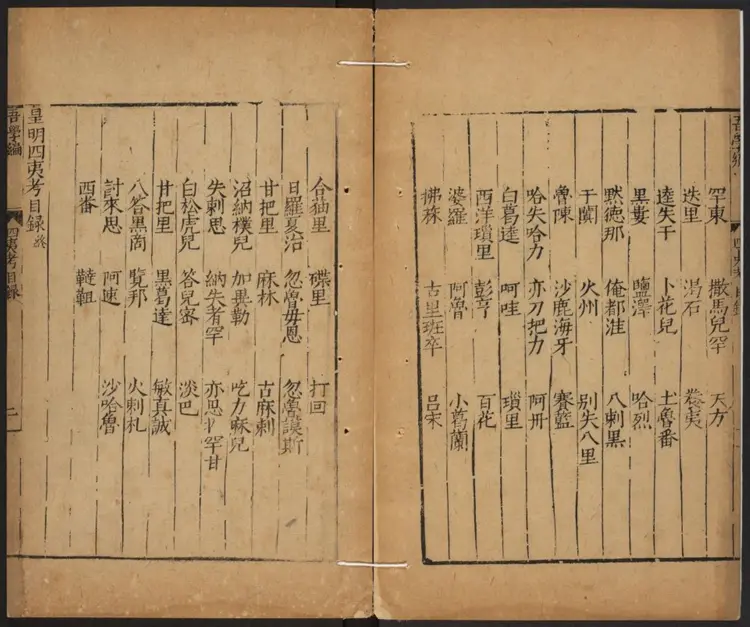 罕東 撒馬兒罕 天方
迭里 渴石 養夷
達失干 卜花兒 土魯番
黑婁 鹽澤 哈烈
默德那 俺都淮 八剌黑
于闐 火州 別失八里
魯陳 沙鹿海牙 賽藍
哈失哈力 亦力把力 阿丹
白葛達 呵哇 瑣里
西洋瑣里 彭亨 百花
婆羅 阿魯 小葛蘭
拂菻 古里班卒 呂宋
合猫里 碟里 打回
日羅夏治 忽魯毋恩 忽魯謨斯
甘把里 麻林 古麻剌
沼納樸兒 加異勒 吃力麻兒
失剌思 納失者罕 亦思罕甘
白松虎兒 答兒密 淡巴
甘把里 黑葛達 敏真誠
八答黑商 覽邦 火剌札
討來思 阿速 沙哈魯
西番 韃靼
皇明四夷考目録終
吾學編 四夷考目録 二